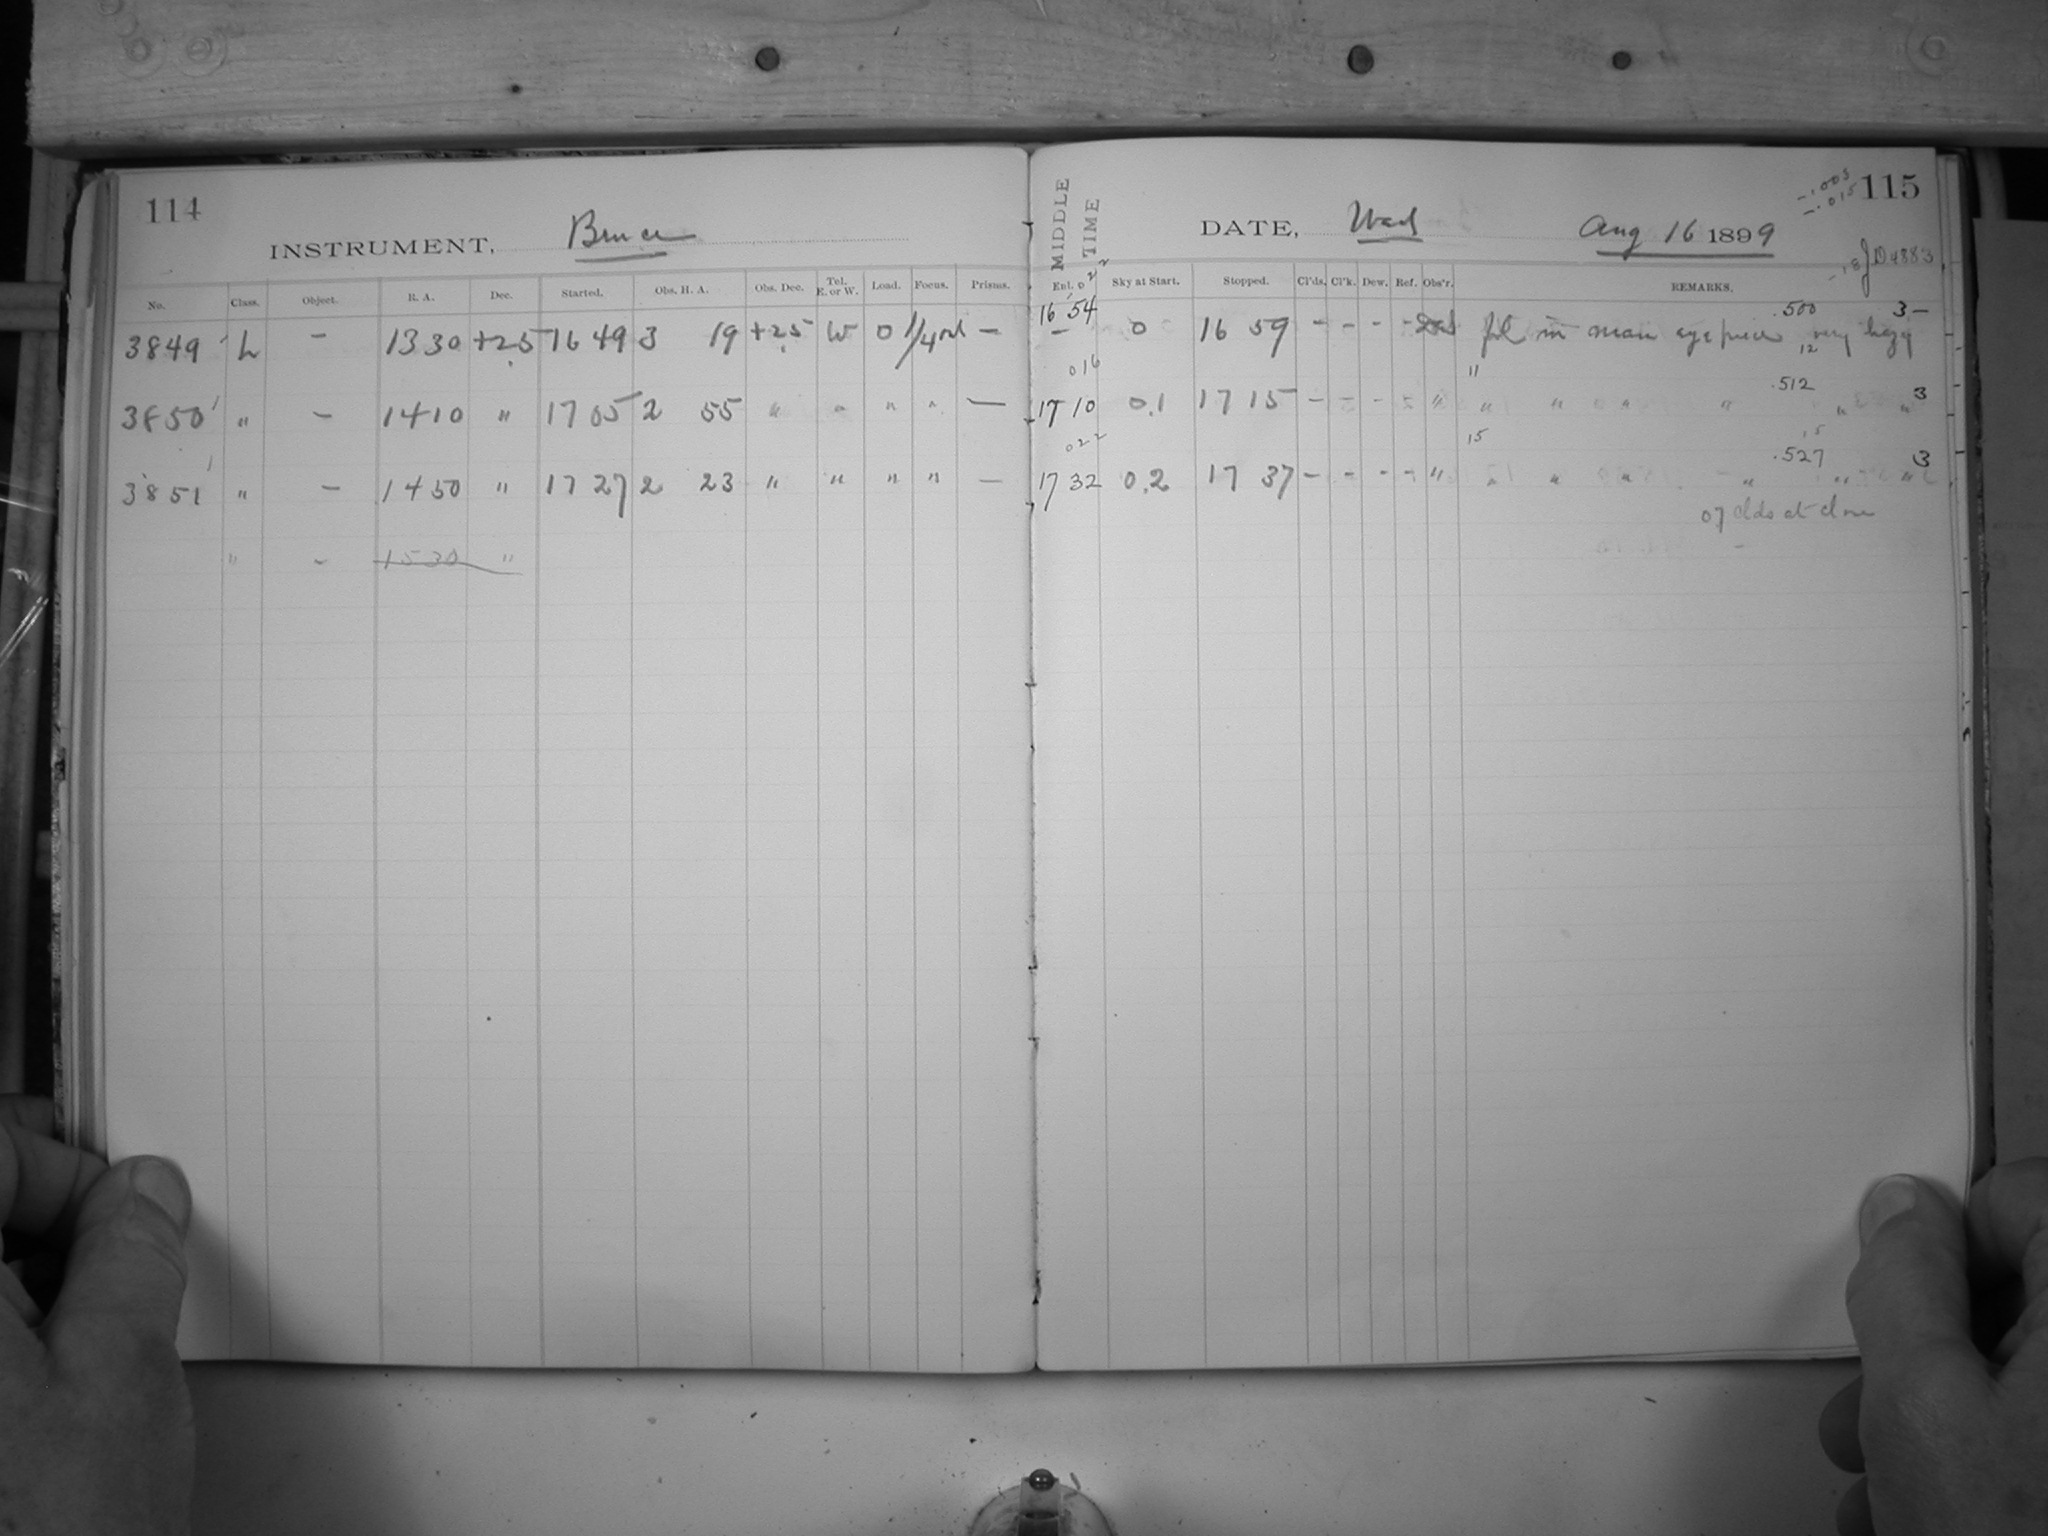 114
INSTRUMENT, Bruce
No. Class. Object. R. A. Dec. Started. Obs. H. A. Obs. Dec. Tel. E. or W. Load. Focus. Prisms.
3849 L — 13 30 +25 16 49 3 19 +25 W 0 —
3850 " — 14 10 " 17 05 2 55 " " " " —
3851 " — 14 50 " 17 27 2 23 " " " " —
" — 15 30 "
MIDDLE TIME
DATE, Wed Aug 16 1899
-.003
-.015
115
JD 4883
Enl. Sky at Start. Stopped. Cl'ds. Cl'k. Dew. Ref. Obs'r. REMARKS.
022
.500 3-
16 54
— 0 16 59 - - - - in main eyepiece very hazy
12
016
11
.512 3
17 10 0.1 17 15 - - - - " " " " " " "
022
15
15
.527 3
17 32 0.2 17 37 - - - - " " " " " " "
07 clds at close